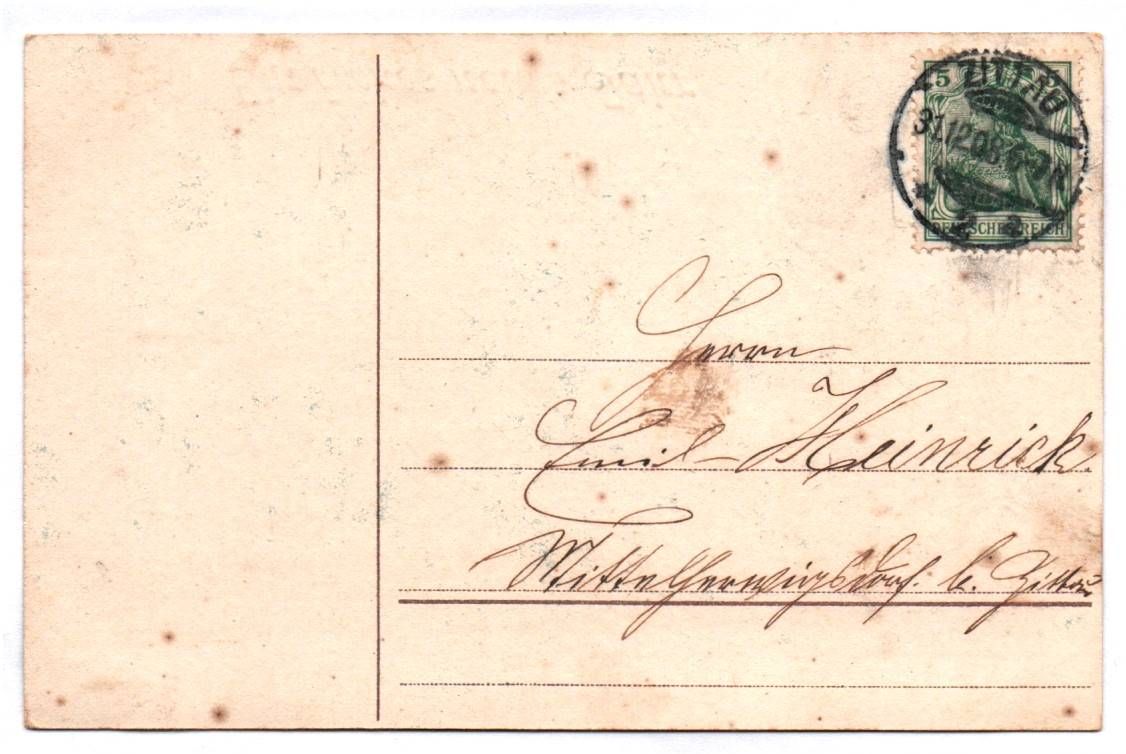 5
ZITTAU
31.12.08.
DEUTSCHES REICH
Herrn
Emil Heinrich.
Mittelherwigsdorf. b. Zittau